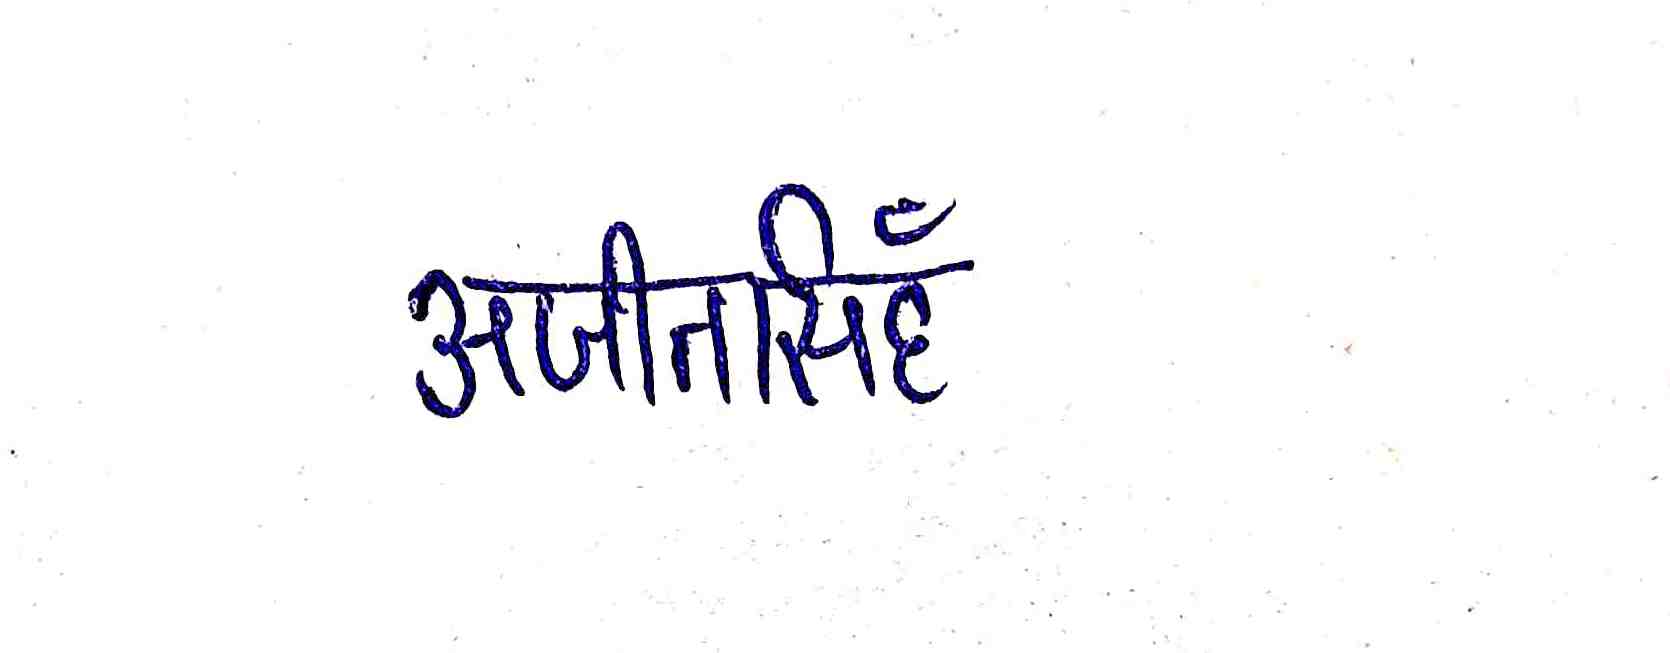 अजीतसिहँ